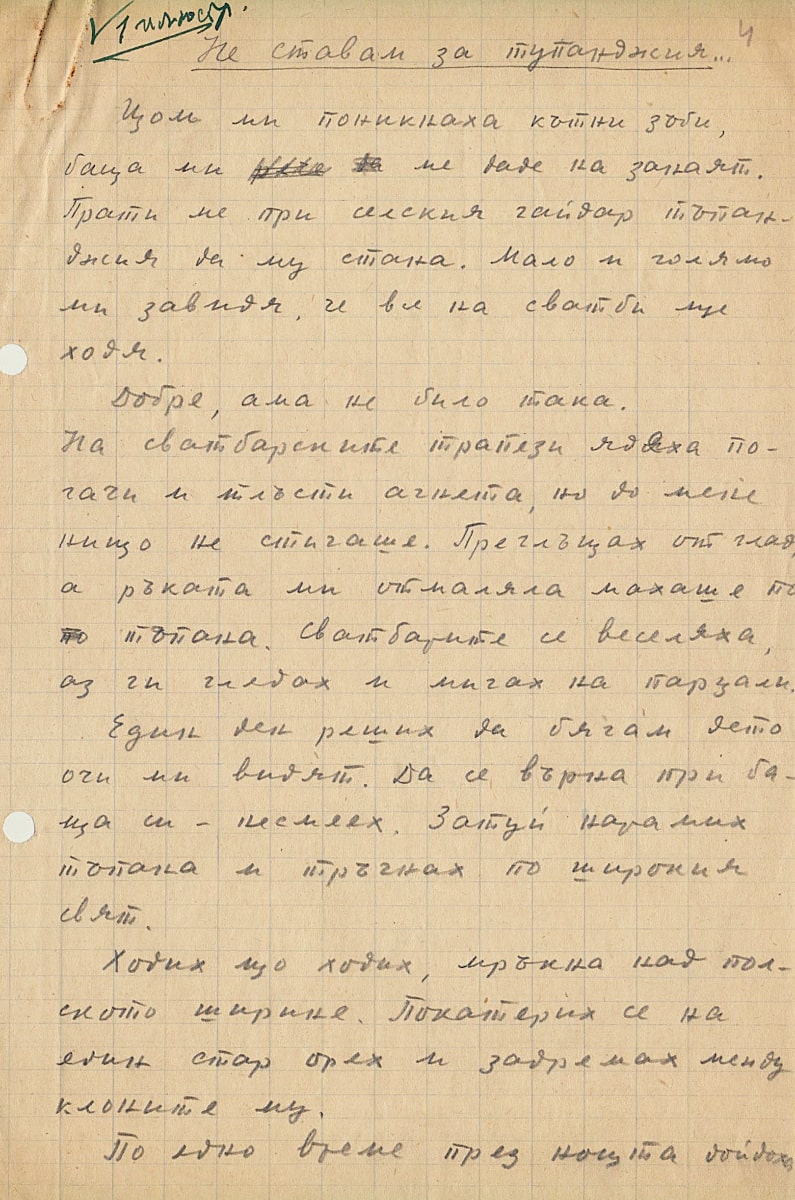 √ 1 илюстр.
4
Не ставам за тупанджия...
Щом ми поникнаха кътни зъби,
баща ми да ме даде на занаят.
Прати ме при селския гайдар тъпан-
джия да му стана. Мало и голямо
ми завидя, че все на сватби ще
ходя.
Добре, ама не било така.
На сватбарските трапези ядяха по-
гачи и тлъсти агнета, но до мене
нищо не стигаше. Преглъщах от глад,
а ръката ми отмаляла махаше по
по тъпана. Сватбарите се веселяха,
аз ги гледах и мигах на парцали.
Един ден реших да бягам дето
очи ми видят. Да се върна при ба-
ща си - несмеех. Затуй нарамих
тъпана и тръгнах по широкия
свят.
Ходих що ходих, мръкна над пол-
ското ширине. Покатерих се на
един стар орех и задремах между
клоните му.
По едно време през нощта дойдоха